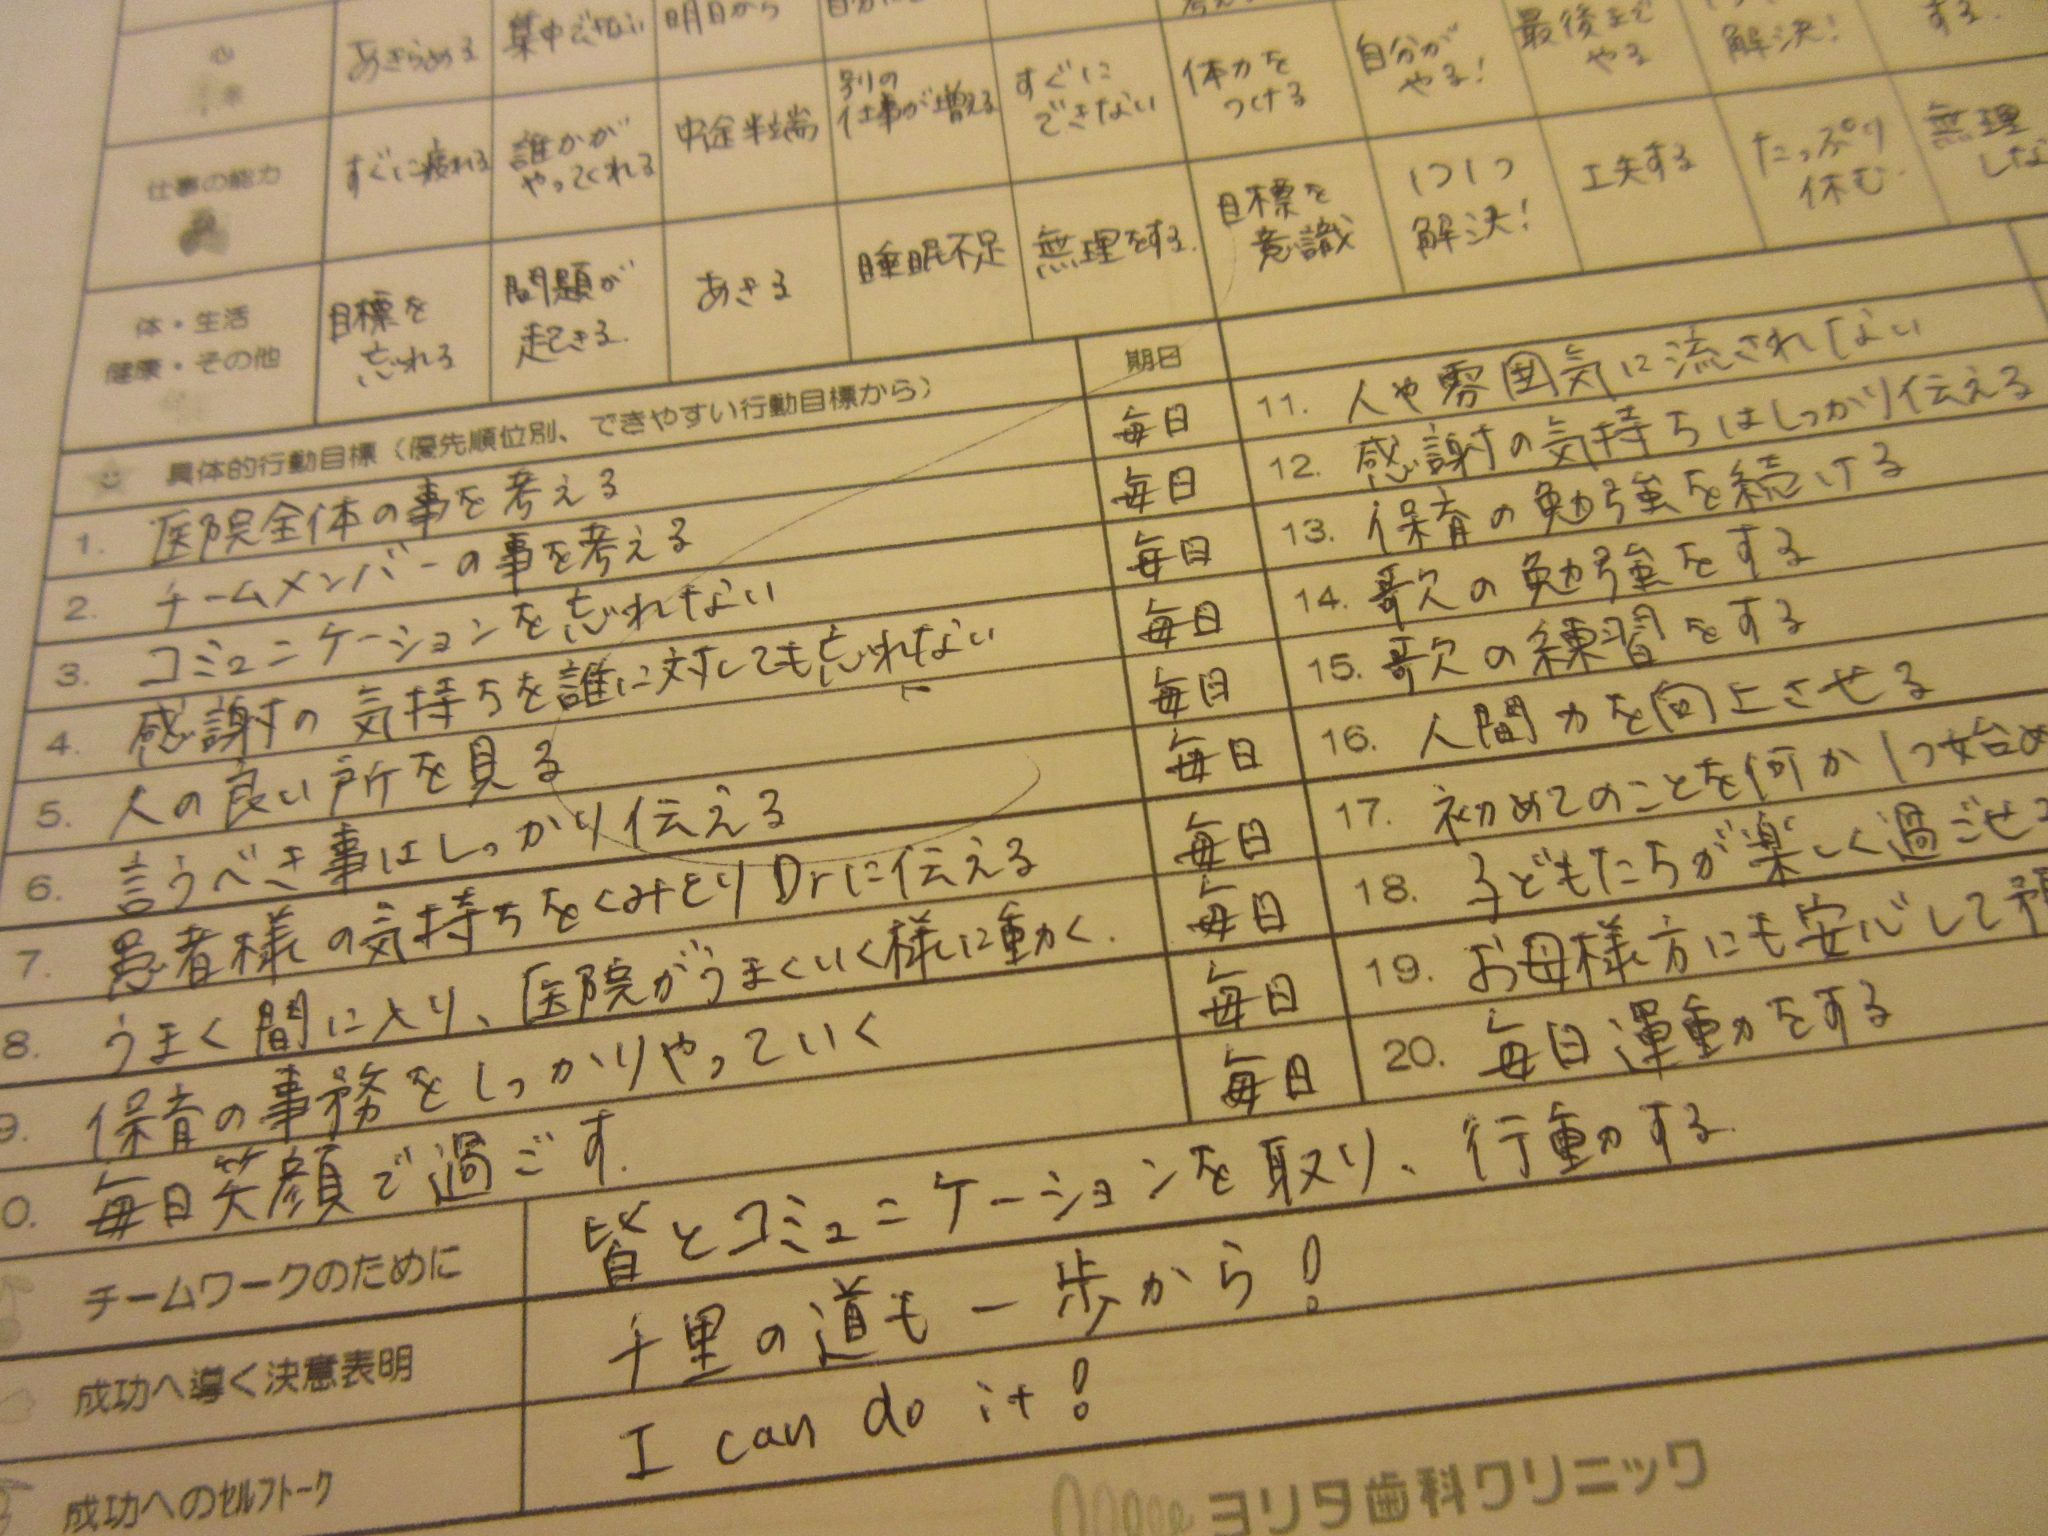 あきらめる 集中できない 明日から
自分が やる! 最後まで やる 解決! する.
仕事の能力 すぐに疲れる 誰かが やってくれる 中途半端 別の 仕事が増える すぐに できない 体力を つける
目標を 意識 1つ1つ 解決! 工夫する たっぷり 休む. 無理
体・生活 健康・その他 目標を 忘れる 問題が 起きる. あきる 睡眠不足 無理をする.
具体的行動目標(優先順位別、できやすい行動目標から) 期日
1. 医院全体の事を考える 毎日
2. チームメンバーの事を考える 毎日
3. コミュニケーションを忘れない 毎日
4. 感謝の気持ちを誰に対しても忘れない 毎日
5. 人の良い所を見る 毎日
6. 言うべき事はしっかり伝える 毎日
7. 患者様の気持ちをくみとりDrに伝える 毎日
8. うまく間に入り、医院がうまくいく様に動く. 毎日
9. 保育の事務をしっかりやっていく 毎日
0. 毎日笑顔で過ごす. 毎日
11. 人や雰囲気に流されない
12. 感謝の気持ちはしっかり伝える
13. 保育の勉強を続ける
14. 歌の勉強をする
15. 歌の練習をする
16. 人間力を向上させる
17. 初めてのことを何か1つ始め
18. 子どもたちが楽しく過ごせる
19. お母様方にも安心して預
20. 毎日運動をする
チームワークのために 皆とコミュニケーションを取り、行動する.
成功へ導く決意表明 千里の道も一歩から!
成功へのセルフトーク I can do it!
ヨリタ歯科クリニック